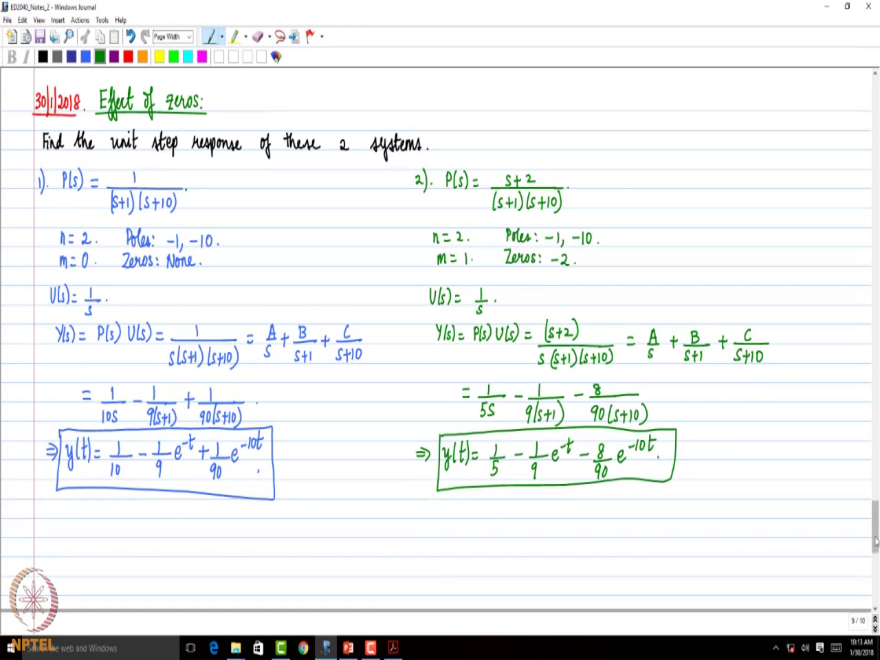 ED2040_Notes_2 - Windows Journal
File Edit View Insert Actions Tools Help
Page Width
B I
30/1/2018. Effect of zeros:
Find the unit step response of these 2 systems.
1). P(s) = 1 / (s+1)(s+10).
n = 2. Poles: -1, -10.
m = 0. Zeros: None.
U(s) = 1/s.
Y(s) = P(s) U(s) = 1 / s(s+1)(s+10) = A/s + B/s+1 + C/s+10
= 1/10s - 1/9(s+1) + 1/90(s+10).
⇒ y(t) = 1/10 - 1/9 e^-t + 1/90 e^-10t.
2). P(s) = s+2 / (s+1)(s+10).
n = 2. Poles: -1, -10.
m = 1. Zeros: -2.
U(s) = 1/s.
Y(s) = P(s) U(s) = (s+2) / s(s+1)(s+10) = A/s + B/s+1 + C/s+10
= 1/5s - 1/9(s+1) - 8/90(s+10)
⇒ y(t) = 1/5 - 1/9 e^-t - 8/90 e^-10t.
9 / 10
NPTEL
the web and Windows
10:13 AM
1/30/2018